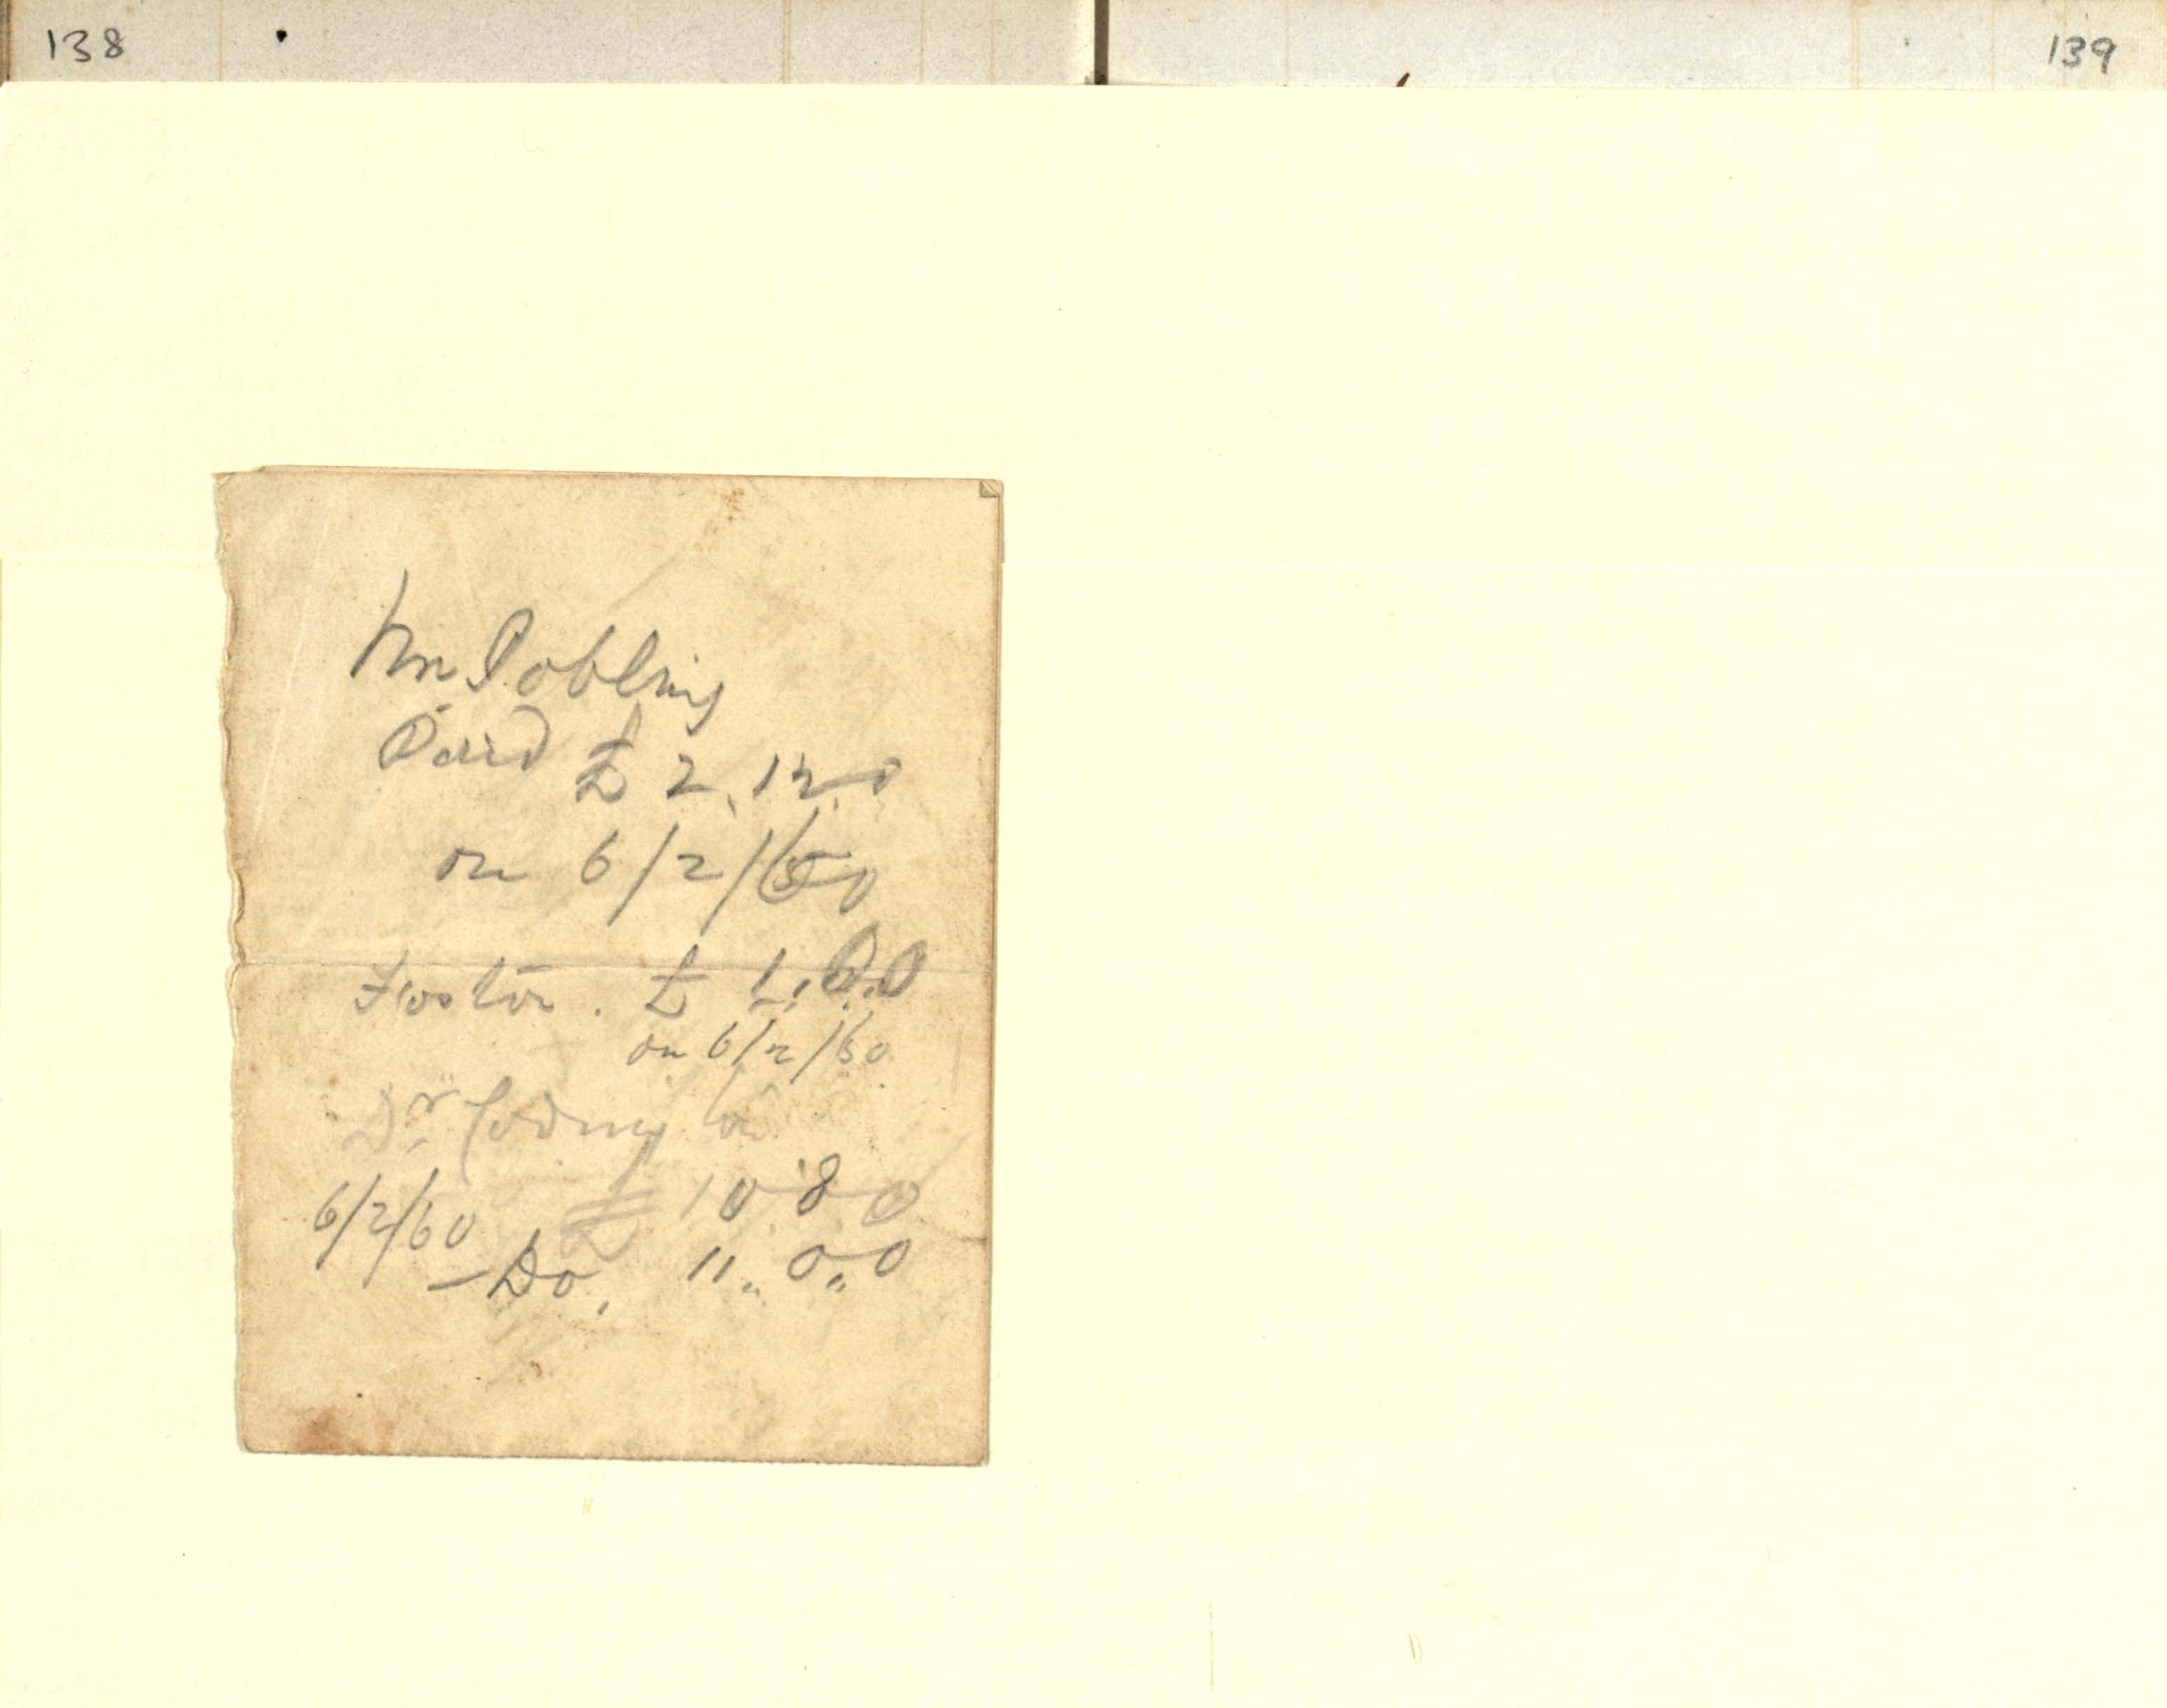 138
139
Mr Jobling
Paid £ 2. 12. 0
on 6/2/60
Foster. £ 1. 0. 0
on 6/2/60
Dr on
6/2/60 £ 10. 8. 0
- Do. 11. 0. 0